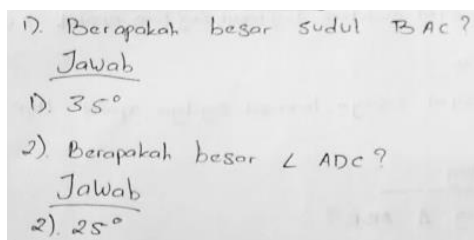 1). Berapakah besar sudul BAC?
Jawab
1). 35°
2). Berapakah besar ∠ ADC?
Jawab
2). 25°